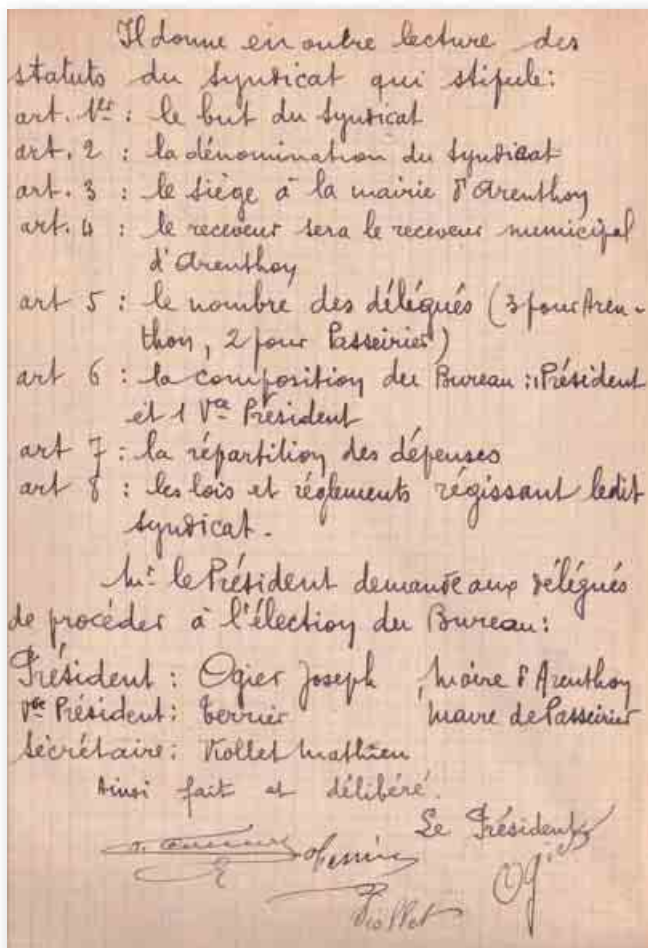 Il donne en outre lecture des
statuts du Syndicat qui stipule:
art. 1er : le but du Syndicat
art. 2 : la dénomination du Syndicat
art. 3 : le siège à la mairie d'Arenthon
art. 4 : le receveur sera le receveur municipal
d'Arenthon
art 5 : le nombre des délégués (3 pour Aren-
thon, 2 pour Passeirier)
art 6 : la composition du Bureau : 1 Président
et 1 Vce Président
art 7 : la répartition des dépenses
art 8 : les lois et réglements régissant ledit
Syndicat.
Mr le Président demande aux délégués
de procéder à l'élection du Bureau:
Président : Ogier Joseph, Maire d'Arenthon
Vce Président : Terrier Maire de Passeirier
Secrétaire : Viollet Mathieu
Ainsi fait et délibéré.
Le Président
Viollet